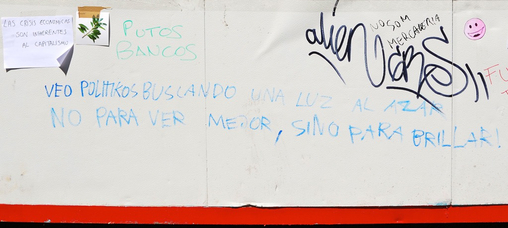 LAS CRISIS ECONOMICAS
SON INHERENTES
AL CAPITALISMO
PUTOS
BANCOS
alien
NO SOM
MERCADERIA
VEO POLITIKOS BUSCANDO UNA LUZ AL AZAR
NO PARA VER MEJOR, SINO PARA BRILLAR!